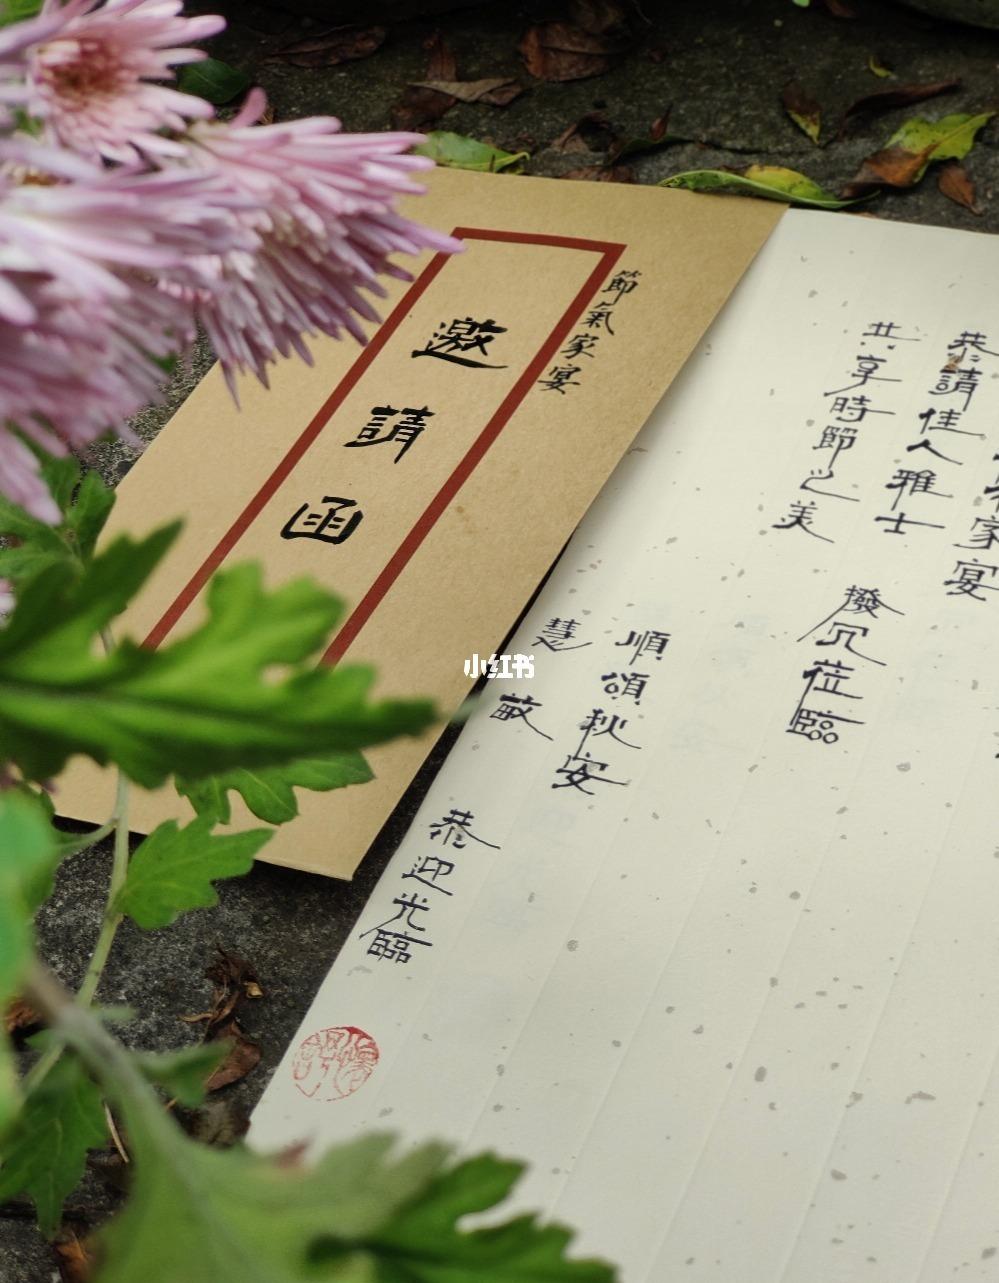 節氣家宴
邀請函
家宴
恭請佳人雅士
共享時節之美
撥冗莅臨
順頌秋安
慧敏
恭迎光臨
小红书